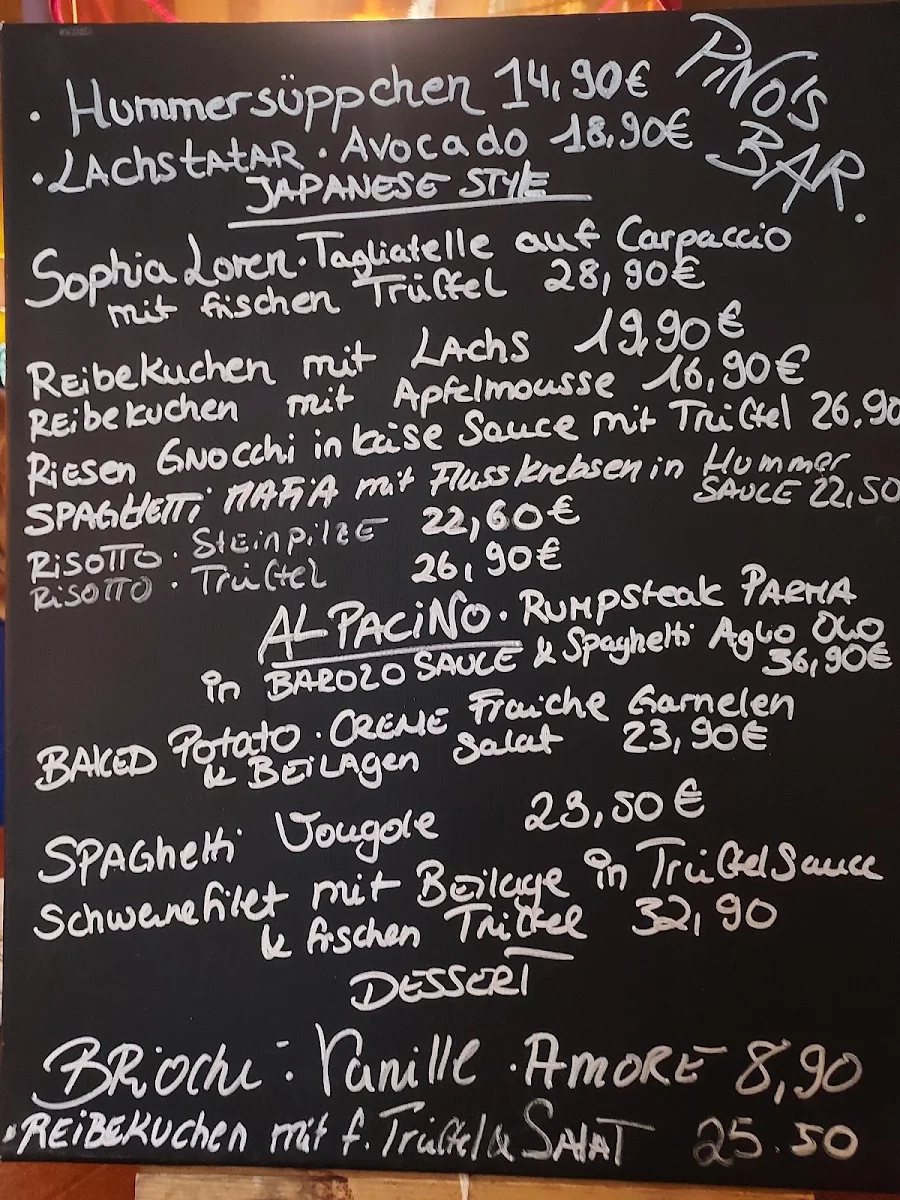 PiNO'S
BAR.
· Hummersüppchen 14,90€
· LAchstatAR · Avocado 18,90€
JAPANESE STYLE
Sophia Loren · Tagliatelle auf Carpaccio
mit frischen Trüffel 28,90€
Reibekuchen mit LAchs 19,90€
REibekuchen mit Apfelmousse 16,90€
Riesen GNOcchi in käise Sauce mit Trüffel 26,90
SPAGHETTi MAFiA mit Flusskrebsen in Hummer
SAUCE 22,50
RiSOTTO · Steinpilze 22,60€
RiSOTTO · Trüffel 26,90€
AL PACiNO · Rumpsteak PARMA
in BAROZO SAUCE & Spaghetti Aglio Olio
36,90€
BAKED Potato · CREME Fraiche Garnelen
& BEiLAgen Salat 23,90€
SPAghetti Vougole 23,50€
Schweinefilet mit Beilage in Trüffel Sauce
& frischen Trüffel 32,90
DESSERT
BRioche · Vanille · AMORE 8,90
· REiBEKUchen mit f. Trüffel & SALAT 25.50